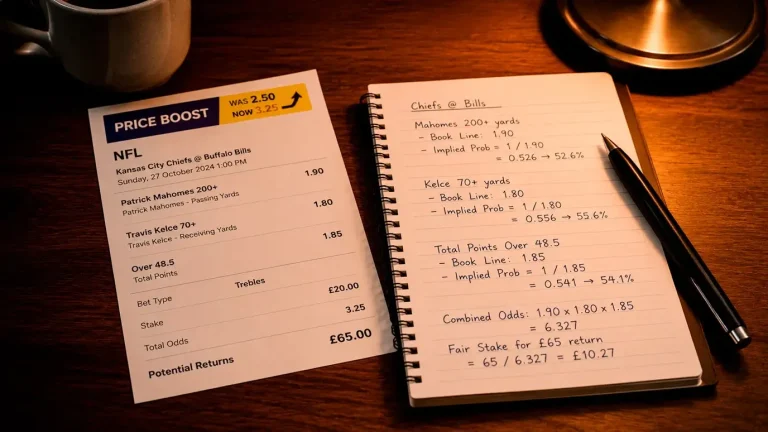 PRICE BOOST
WAS 2.50
NOW 3.25
NFL
Kansas City Chiefs @ Buffalo Bills
Sunday, 27 October 2024 1:00 PM
Patrick Mahomes 200+ 1.90
Patrick Mahomes - Passing Yards
Travis Kelce 70+ 1.80
Travis Kelce - Receiving Yards
Over 48.5 1.85
Total Points
Bet Type Trebles
£20.00
Stake
3.25
Total Odds
£65.00
Potential Returns
Chiefs @ Bills
Mahomes 200+ yards
- Book Line: 1.90
- Implied Prob = 1 / 1.90
= 0.526 → 52.6%
Kelce 70+ yards
- Book Line: 1.80
- Implied Prob = 1 / 1.80
= 0.556 → 55.6%
Total Points Over 48.5
- Book Line: 1.85
- Implied Prob = 1 / 1.85
= 0.541 → 54.1%
Combined Odds: 1.90 x 1.80 x 1.85
= 6.327
Fair Stake for £65 return
= 65 / 6.327 = £10.27